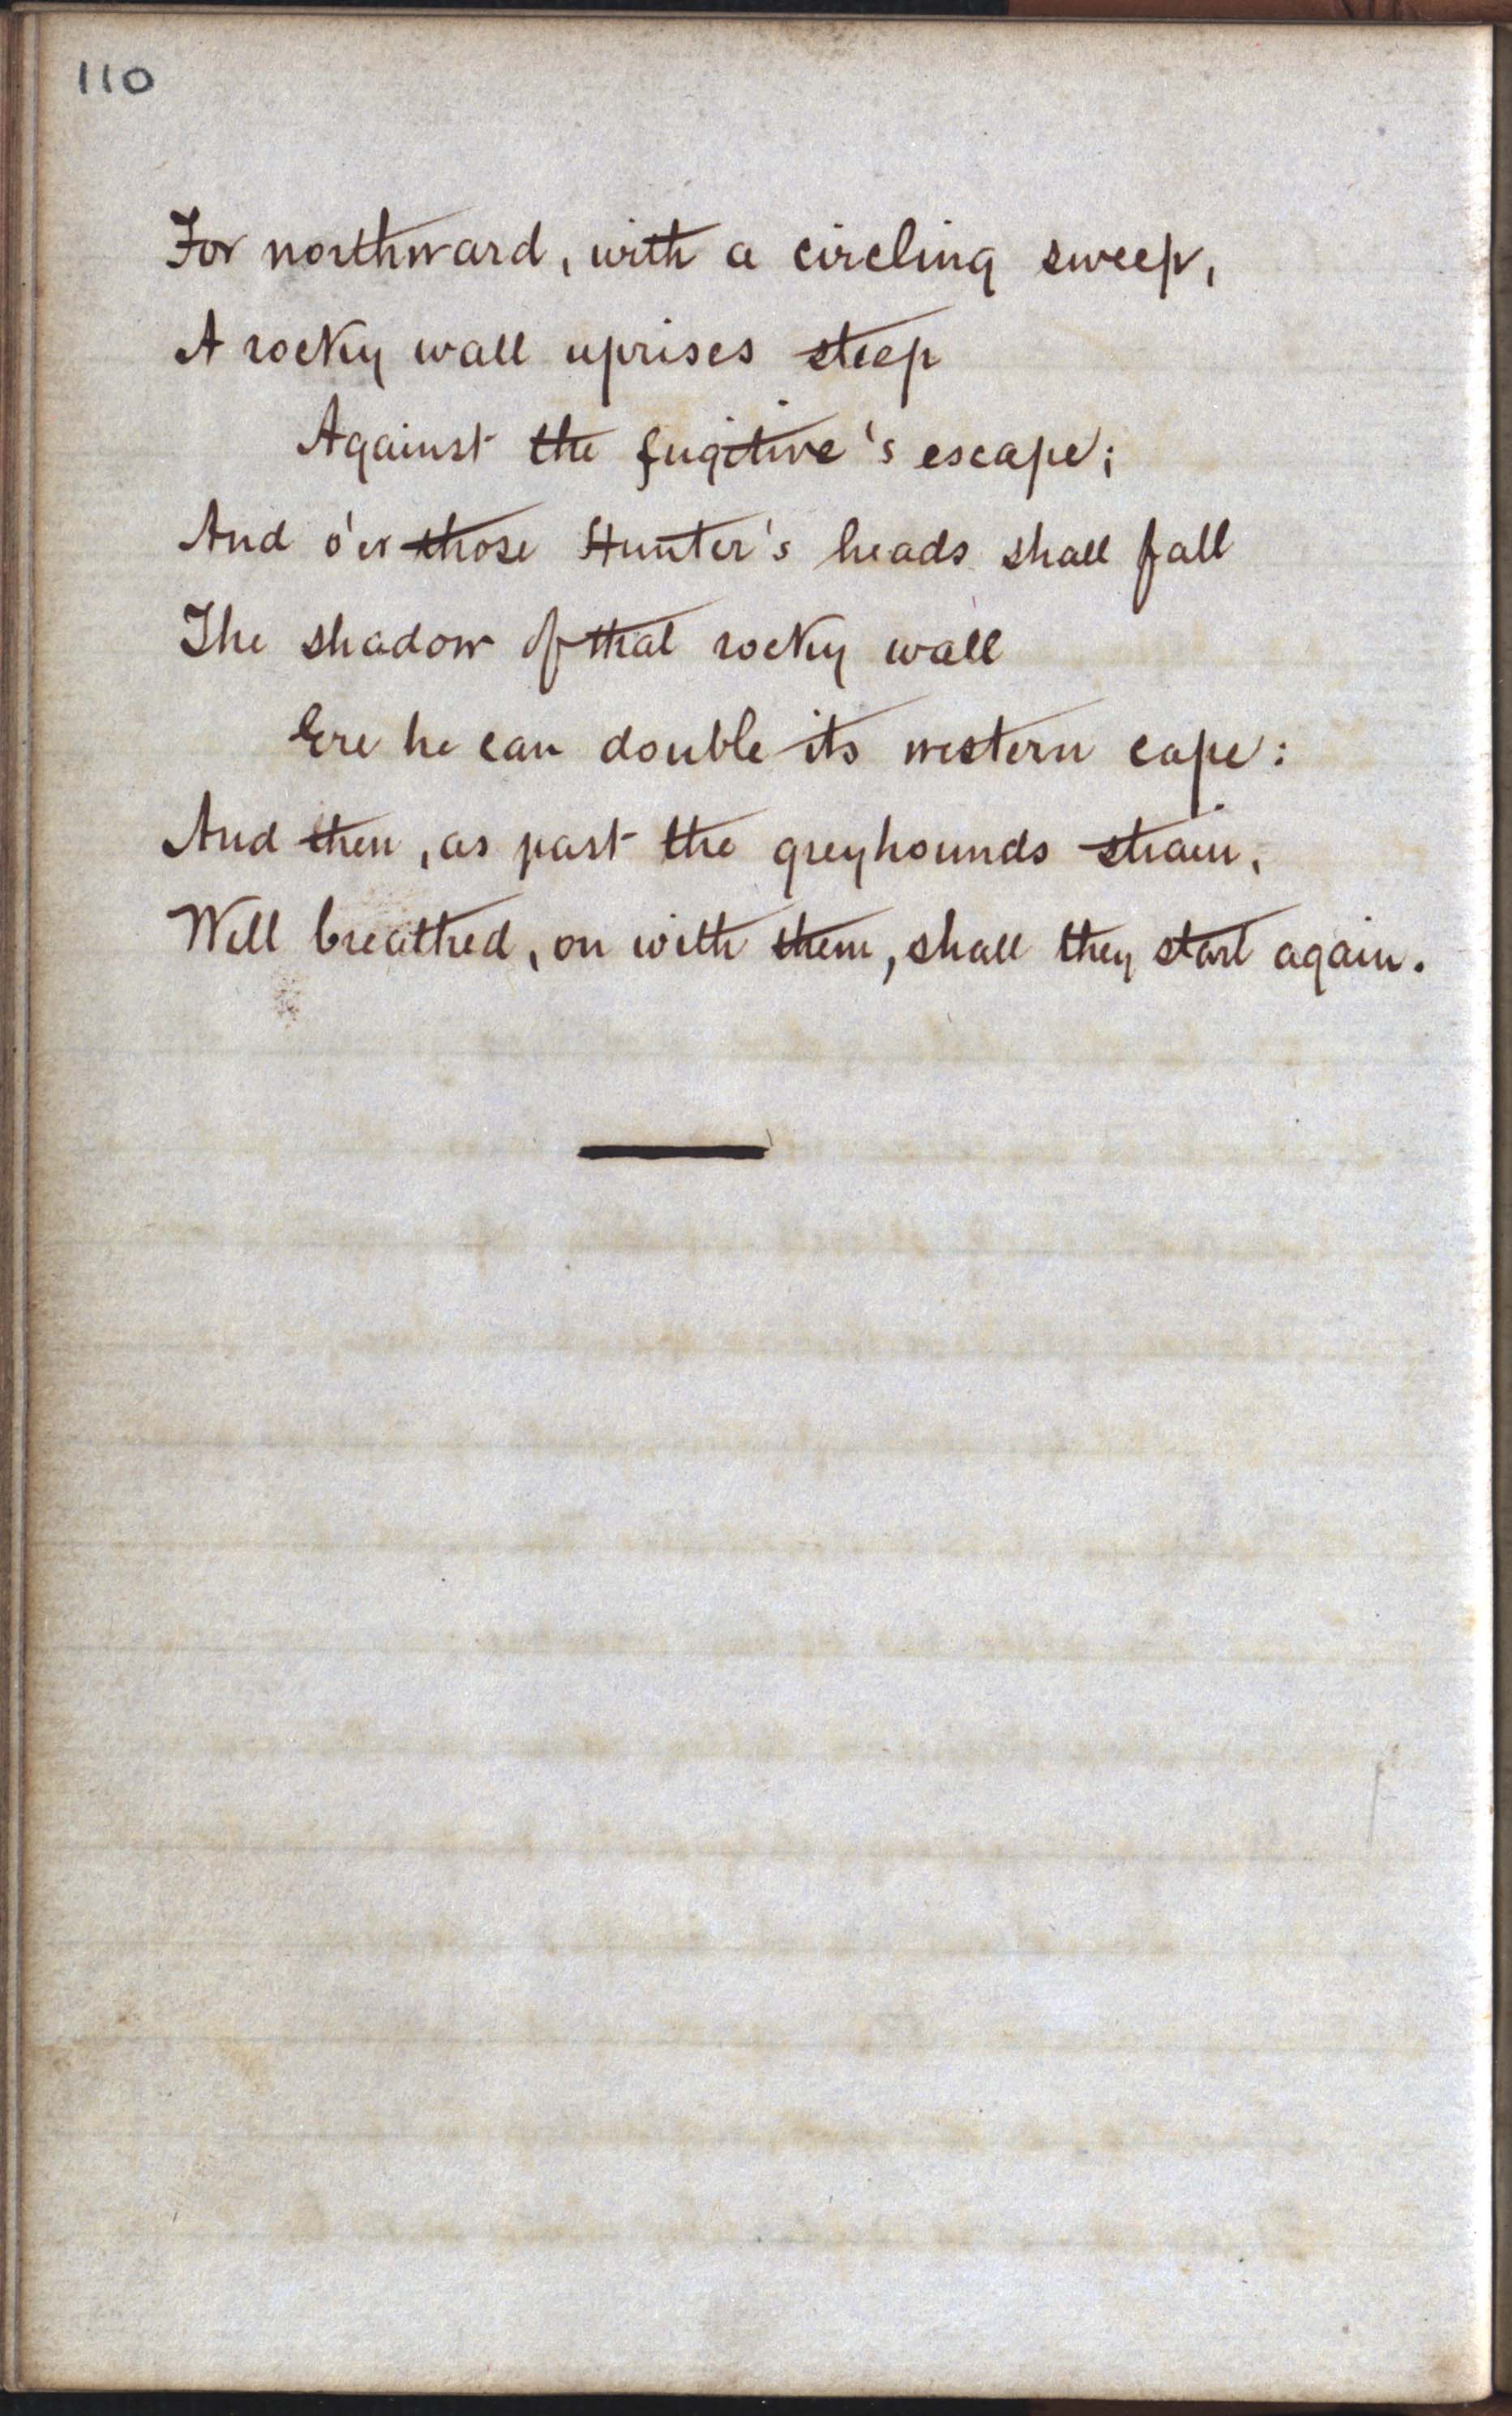 110
For northward, with a circling sweep,
A rocky wall uprises steep
Against the fugitive's escape;
And o'er those Hunter's heads shall fall
The shadow of that rocky wall
Ere he can double its western cape:
And then, as past the greyhounds strain,
Well breathed, on with them, shall they start again.